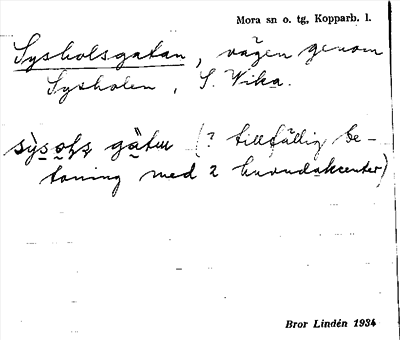 Mora sn o. tg, Kopparb. l.
Sysholsgatan, vägen genom
Sysholen, S. Vika.
gàtųu (? tillfällig be-
toning med 2 huvudakcenter)
Bror Lindén 1934